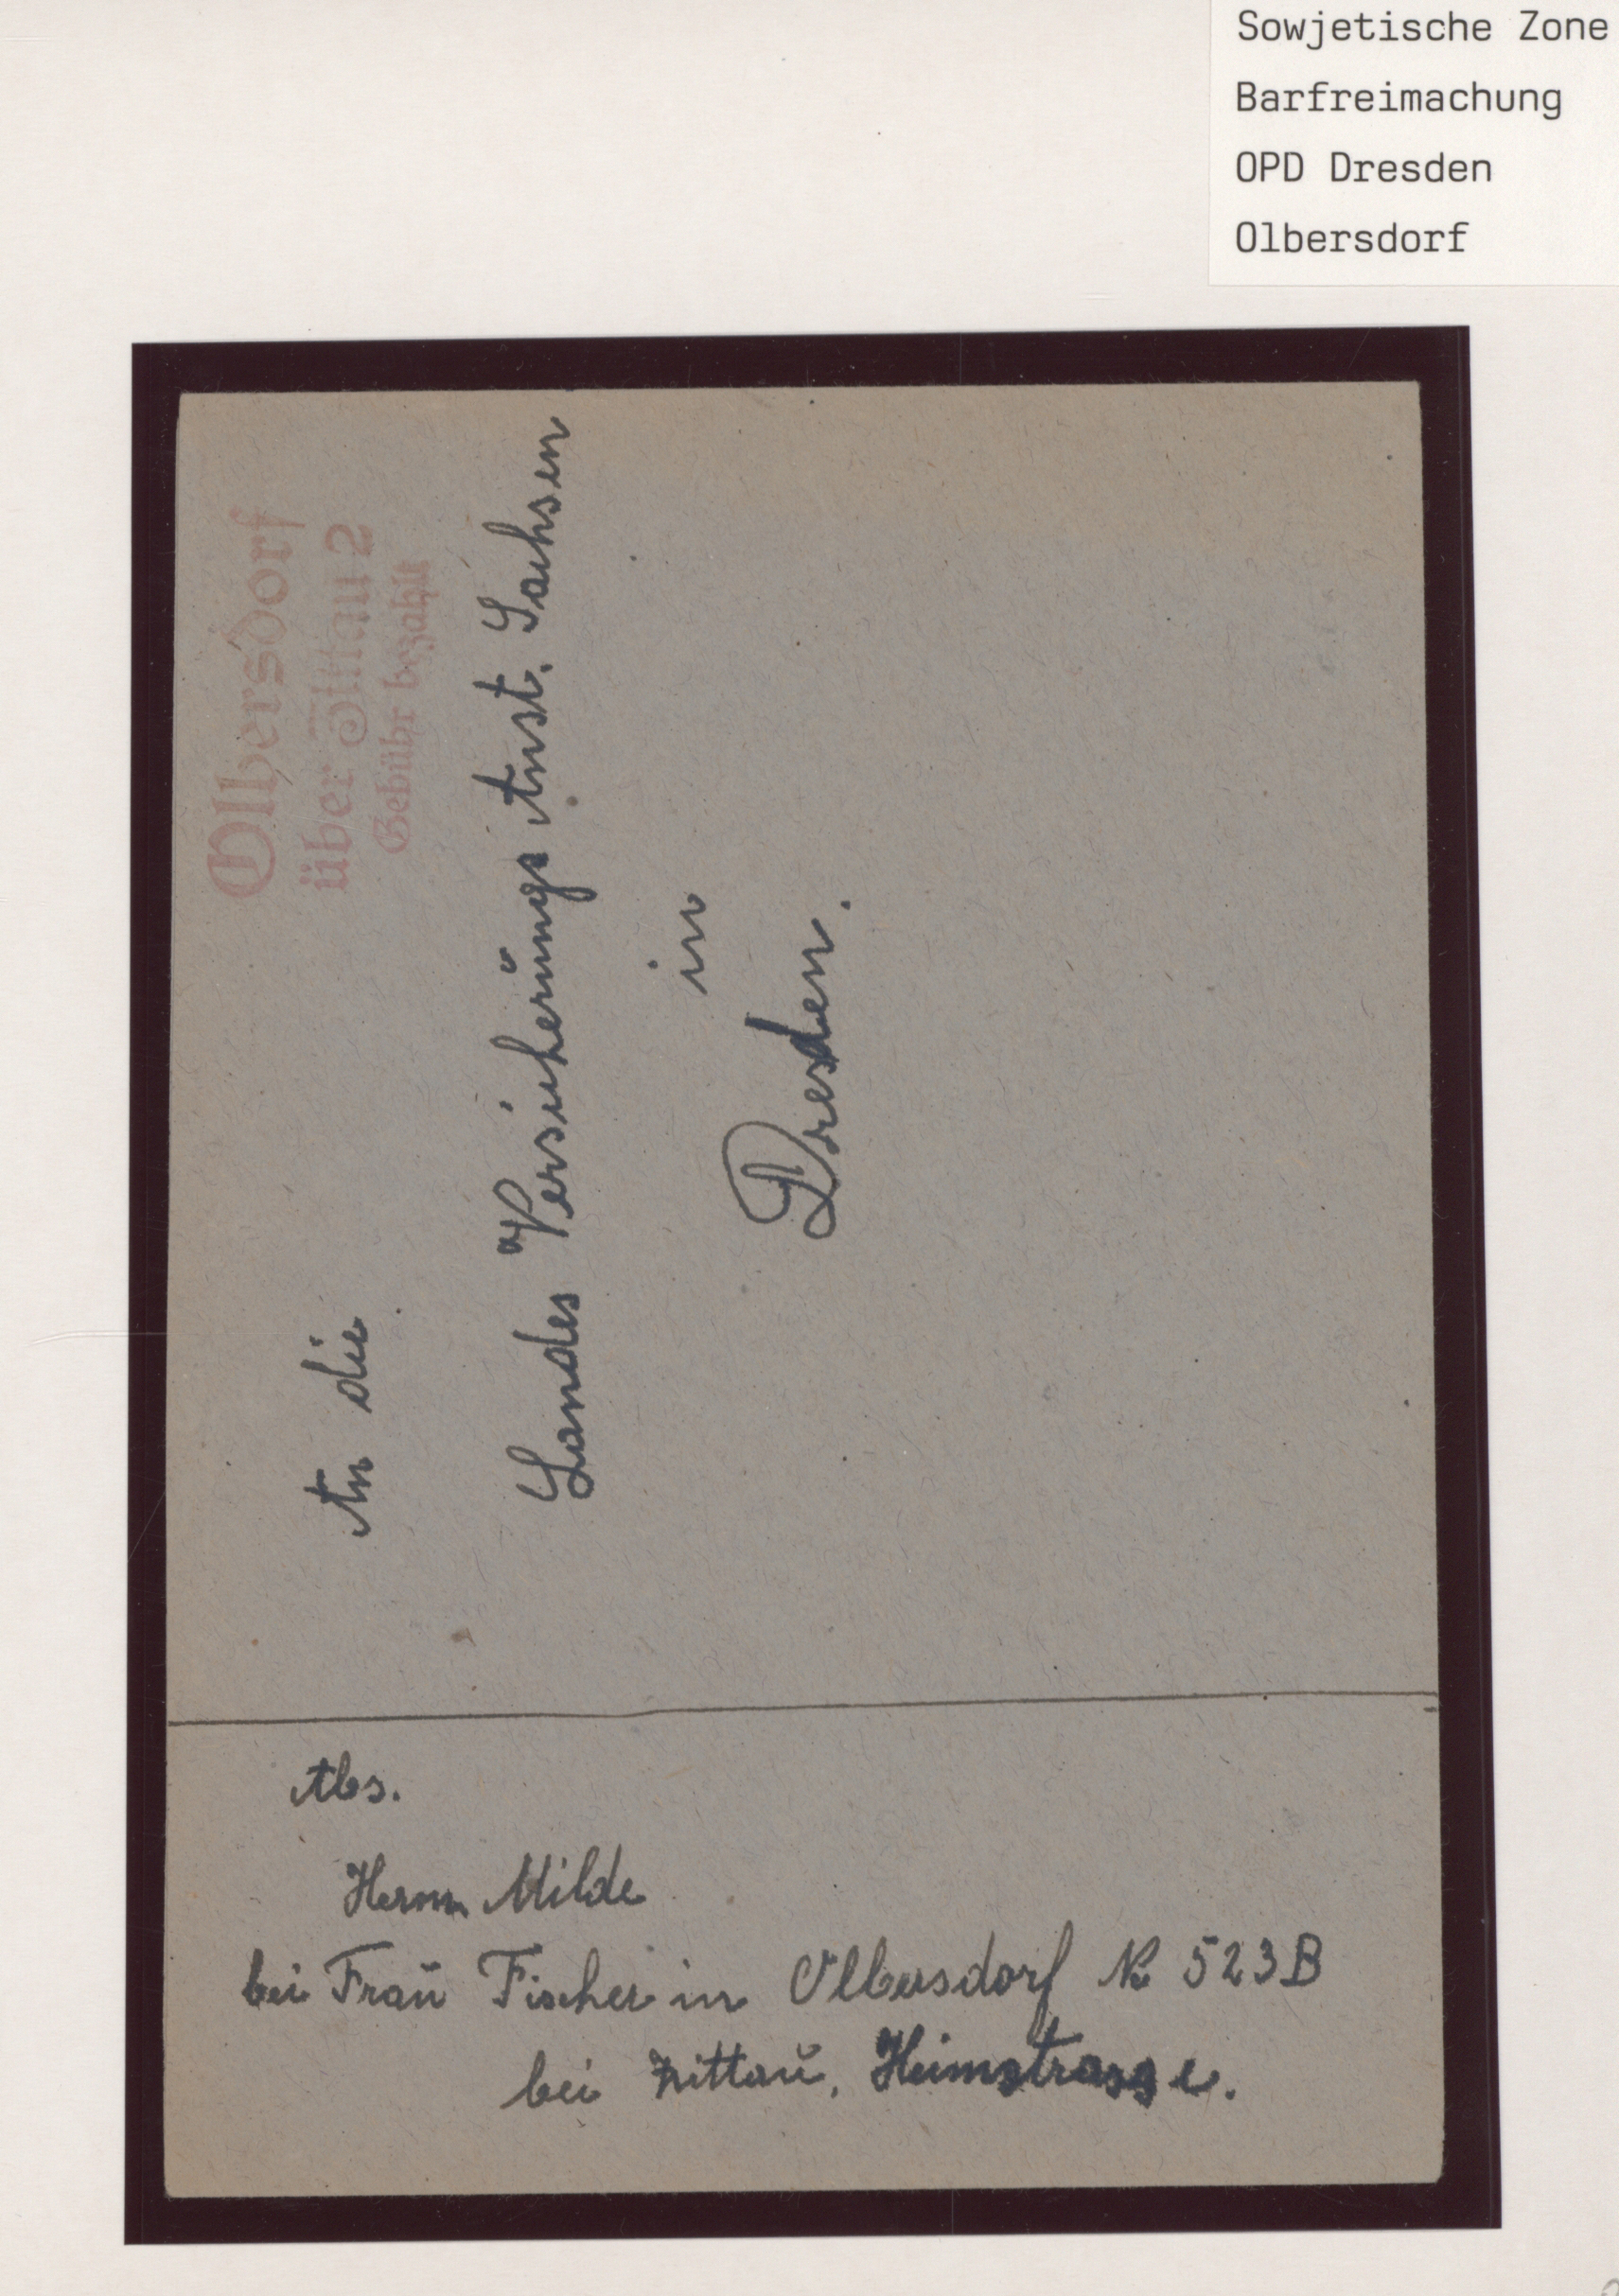 Sowjetische Zone
Barfreimachung
OPD Dresden
Olbersdorf
Olbersdorf
über Zittau 2
Gebühr bezahlt
An die
Landes Versicherungs Anst. Sachsen
in
Dresden.
Abs.
Herm. Milde
bei Frau Fischer in Olbersdorf No 523B
bei Zittau, Heimstrasse.